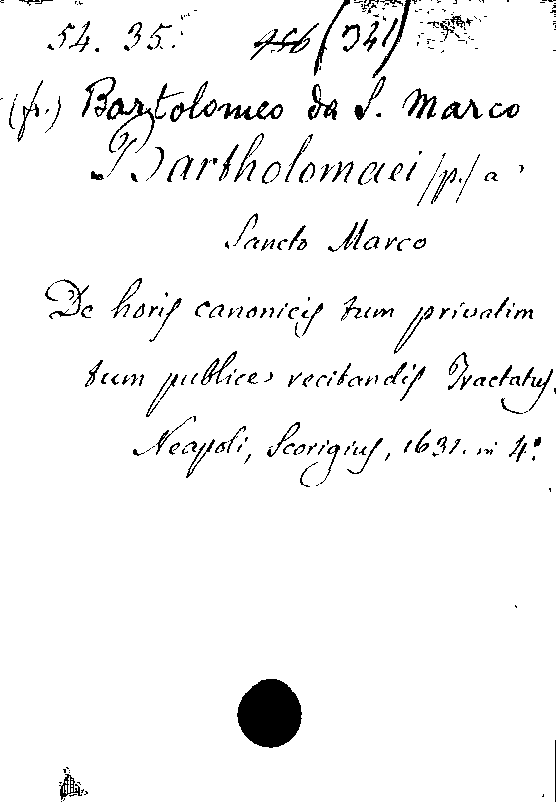 54. 35. 456 (341)
(fr.) Bartolomeo da S. Marco
Bartholomaei /p./ a
Sancto Marco
De horis canonicis tum privatim
tum publice recitandis Tractatus.
Neapoli, Scorigius, 1631. in 4º.